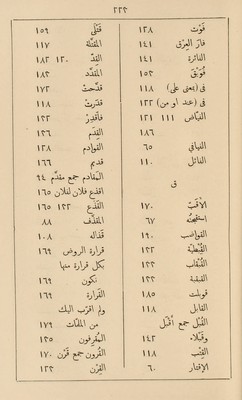 ٢٢٢
فَوْت ١٢٨
فارَ العِرْق ١٤١
الفائرة ١٤١
فُوَيْقَ ١٥٢
فى (بمعنى على) ١١٨
فى (عند او من) ١٢٢
الفيّاض ١١١ ١٢١
١٨٦
الفيافى ٦٥
الفائل ١١٠
ق
الأقَبّ ١٧٠
استقبحتُ ٦٧
القواضب ١٩٠
القُبْطيّة ١٢٢
القَبْقاب
القبقبة
قوبلت ١٨٥
القابل ١١٨
القُبْل جمع أَقْبَل
وقَبْلاء ١٤٢
القِتْب ١١٨
الإقتار ٦٠
قَتْلَى ١٥٩
المقتَّلة ١١٧
القدّ ١٢٠ ١٨٢
المقدّد ١٨٢
قدّحتْ ١٧٢
قدرتْ ١١٨
فاقدِرْ
القِدَم
القوادم ١٢٨
قديم ١٦٦
المقادم جمع مقدّم ٩٤
اقذع فلان لفلان ١٦٥
القَذَع ١٦٥
المقذّف ٨٨
قذاله ١٠٨
قرارة الروض ١٦٩
بكلّ قرارة منها
نكون ١٦٩
القرارة ١٦٩
ولم اقرَب اليك
من الملفات ١٧٩
المُقْرِفون ١٢٥
القُرون جمع قَرْن ١٧٠
القِرْن